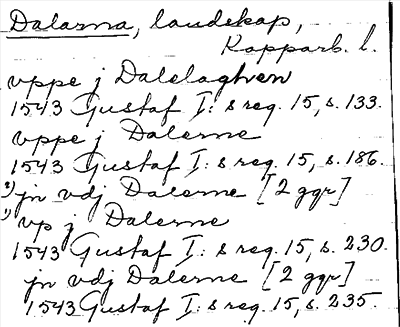 Dalarna, landskap,
Kopparb. l.
vppe j Dalelaghen
1543 Gustaf I:s reg. 15, s. 133.
vppe j Dalerne
1543 Gustaf I:s reg. 15, s. 186.
2) jn vdj Dalerne [2 ggr]
1) vp j Dalerne
1543 Gustaf I:s reg. 15, s. 230.
jn vdj Dalerne [2 ggr]
1543 Gustaf I:s reg. 15, s. 235.